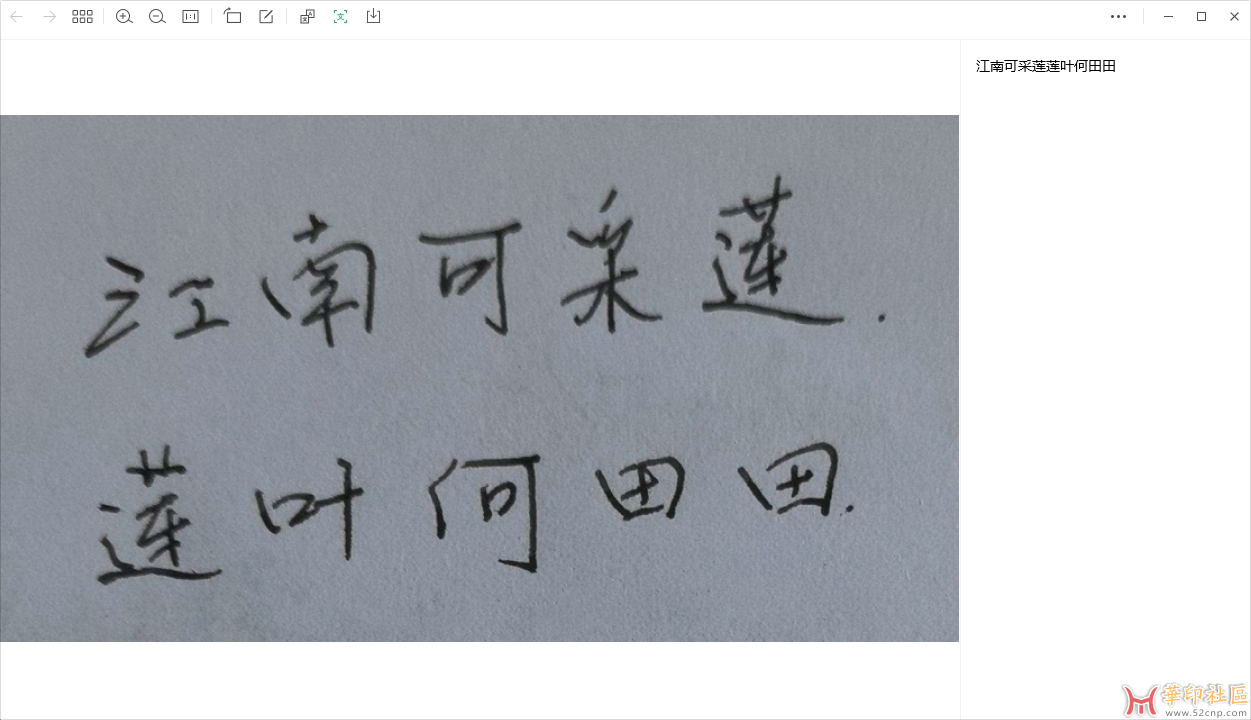 江南可采莲.
莲叶何田田.
江南可采莲莲叶何田田
華印社區
www.52cnp.com